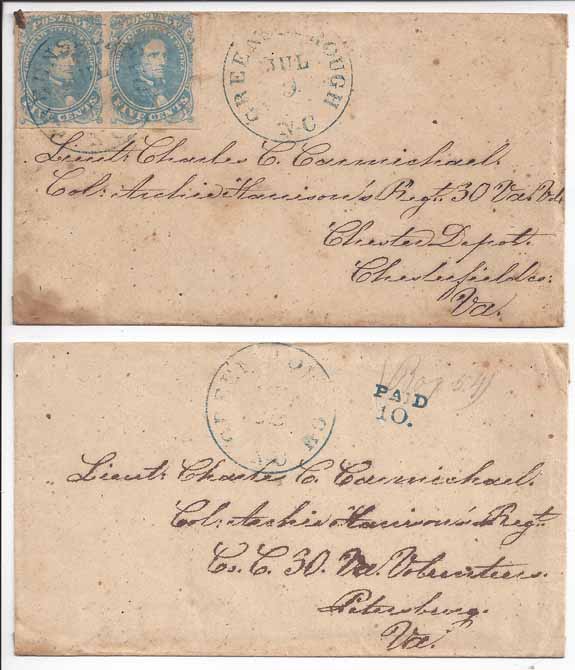 POSTAGE POSTAGE
FIVE CENTS FIVE CENTS
GREENSBOROUGH
JUL
9
N.C
Lieut: Charles C. Carmichael:
Col: Archie Harrison's Regt. 30 Va. Vol.
Chester Depot.
Chesterfield co:
Va.
GREENSBOROUGH
N.C
PAID
10.
(Box 54)
Lieut: Charles C. Carmichael:
Col: Archie Harrison's Regt.
Co. C. 30. Va. Volunteers.
Petersburg.
Va.